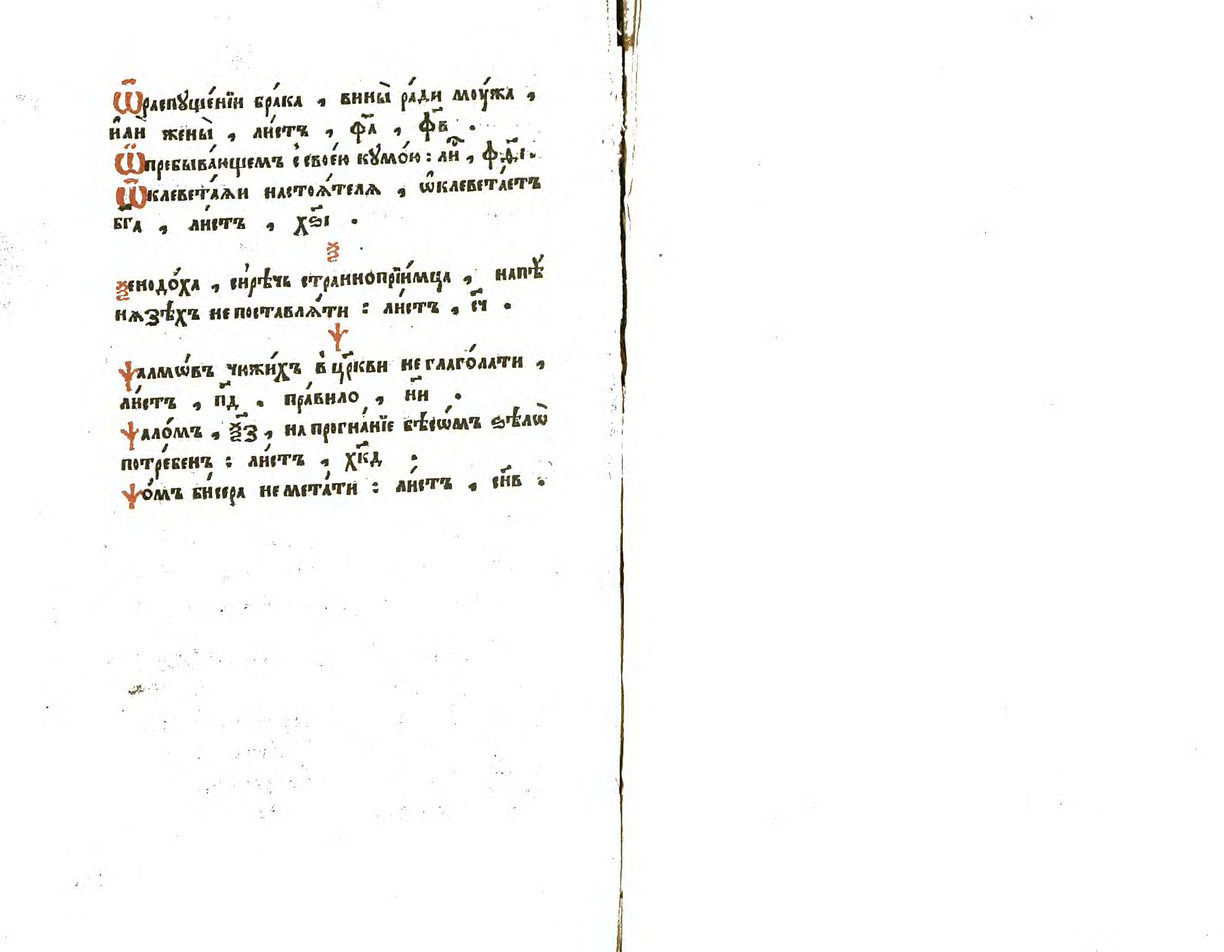 Ѡ҃распꙋще́нїи бра́ка , вины̀ ра́ди моу́жа ,
и҆лѝ жены̀ , ли́стъ , ф҃а , ф҃в .
Ѡ҆пребыва́ющемъ с̾свое́ю кꙋмо́ю : ли̾ ,
Ѡ҆клевета́ѧи настоѧ́телѧ , ѡ҆клевета́етъ
бг҃а , ли́стъ , хѕ҃і .
ѯ
ѯенодо́ха , си́рѣчь страннопрїи́мца , напѣꙋ
нѧзѣ́хъ не поставлѧ́ти : ли́стъ , сч҃ .
ѱ
ѱалмѡ́въ чюжи́хъ в̾ цр҃кви не глаго́лати ,
ли́стъ , п҃д . пра́вило , н҃и .
ѱало́мъ , ѯ҃з , на прогна́нїе бѣсѡ́мъ ѕѣлѡ̀
потре́бенъ : ли́стъ , хк҃д .
ѱо́мъ би́сера не мета́ти : ли́стъ , сн҃в .